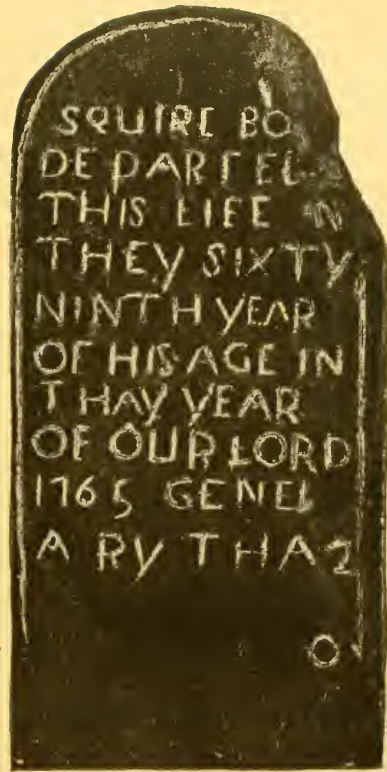 SQUIRE BO
DEPARTEL
THIS LIFE N
THEY SIXTY
NINTH YEAR
OF HIS AGE IN
THAY YEAR
OF OUR LORD
1765 GENEL
ARY THA 2
O